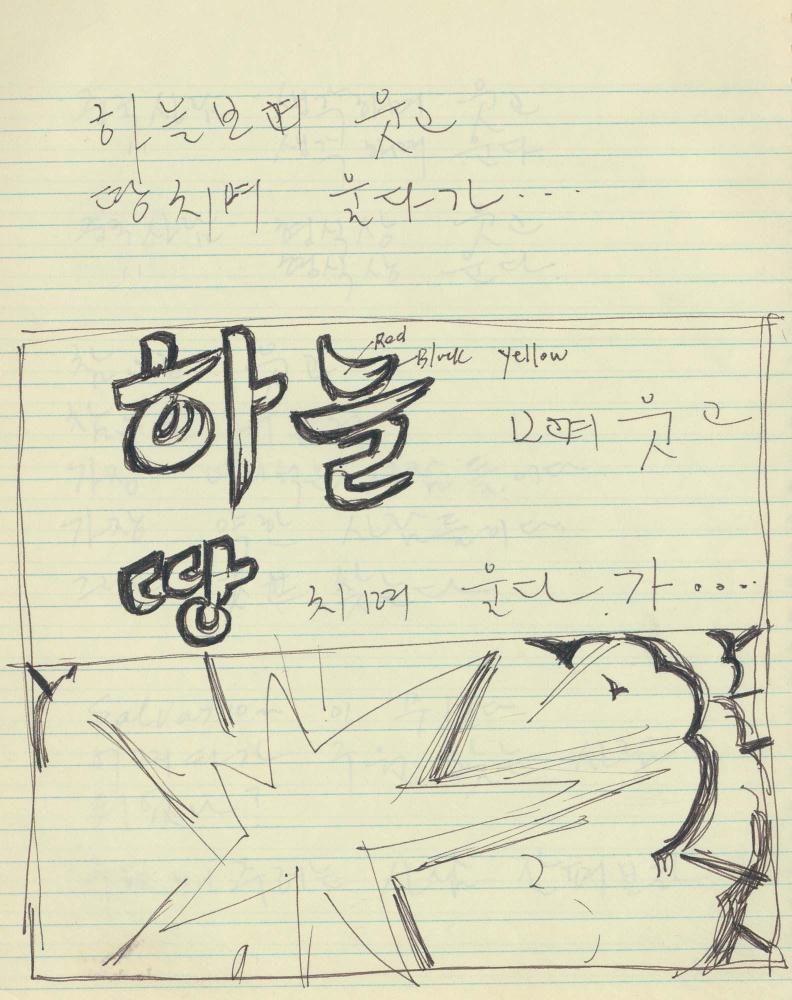 하늘보며 웃고
땅치며 웃다가...
Red
Black Yellow
하늘 보며 웃고
땅 치며 웃다가....